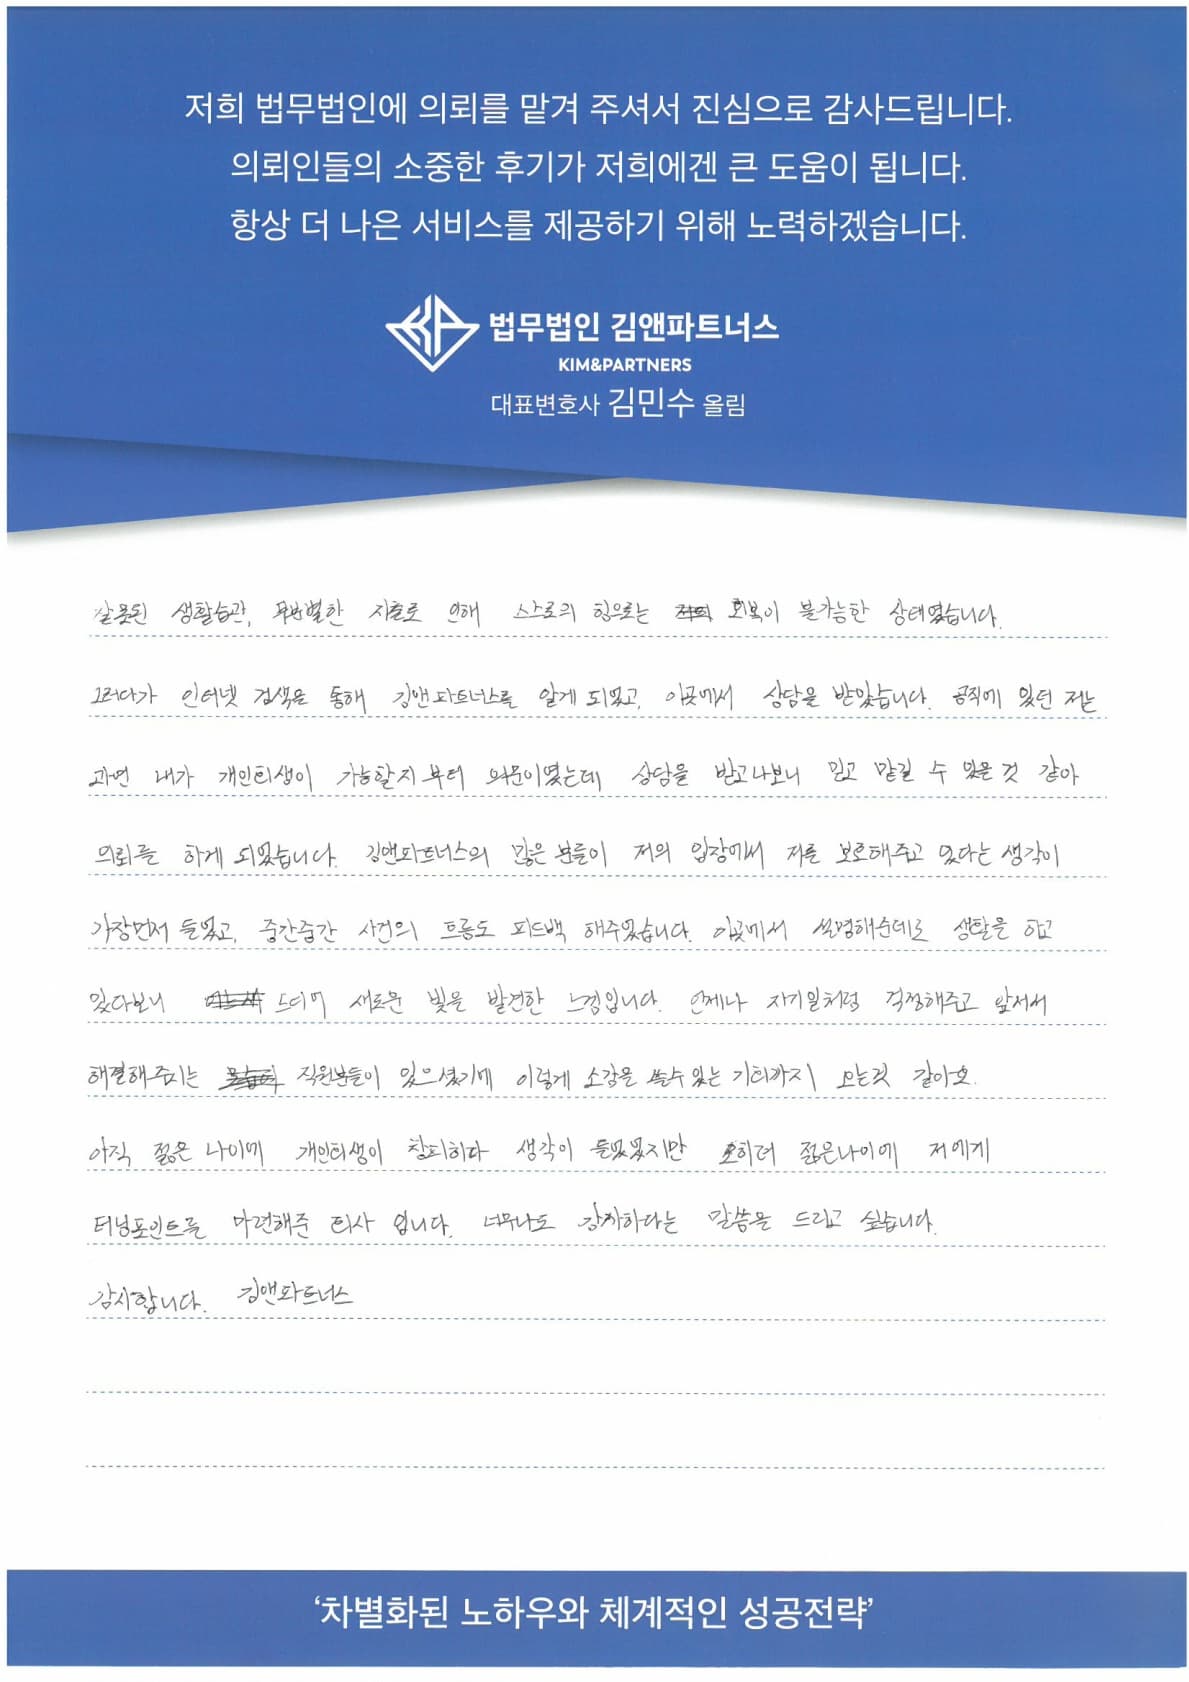 저희 법무법인에 의뢰를 맡겨 주셔서 진심으로 감사드립니다.
의뢰인들의 소중한 후기가 저희에겐 큰 도움이 됩니다.
항상 더 나은 서비스를 제공하기 위해 노력하겠습니다.
법무법인 김앤파트너스
KIM&PARTNERS
대표변호사 김민수 올림
잘못된 생활습관, 무분별한 지출로 인해 스스로의 힘으로는 회복이 불가능한 상태였습니다.
그러다가 인터넷 검색을 통해 김앤파트너스를 알게 되었고, 이곳에서 상담을 받았습니다. 공직에 있던 저는
과연 내가 개인회생이 가능할지부터 의문이였는데 상담을 받고나보니 믿고 맡길 수 있을 것 같아
의뢰를 하게 되었습니다. 김앤파트너스의 많은 분들이 저의 입장에서 저를 보호해주고 있다는 생각이
가장먼저 들었고, 중간중간 사건의 흐름도 피드백 해주었습니다. 이곳에서 설명해준데로 생활을 하고
있다보니 드디어 새로운 빛을 발견한 느낌입니다. 언제나 자기일처럼 걱정해주고 앞서서
해결해주시는 직원분들이 있으셨기에 이렇게 소감을 쓸수있는 기회까지 오는것 같아요.
아직 젊은 나이에 개인회생이 창피하다 생각이 들었었지만 오히려 젊은나이에 저에게
터닝포인트를 마련해준 회사 입니다. 너무나도 감사하다는 말씀을 드리고 싶습니다.
감사합니다. 김앤파트너스
‘차별화된 노하우와 체계적인 성공전략’